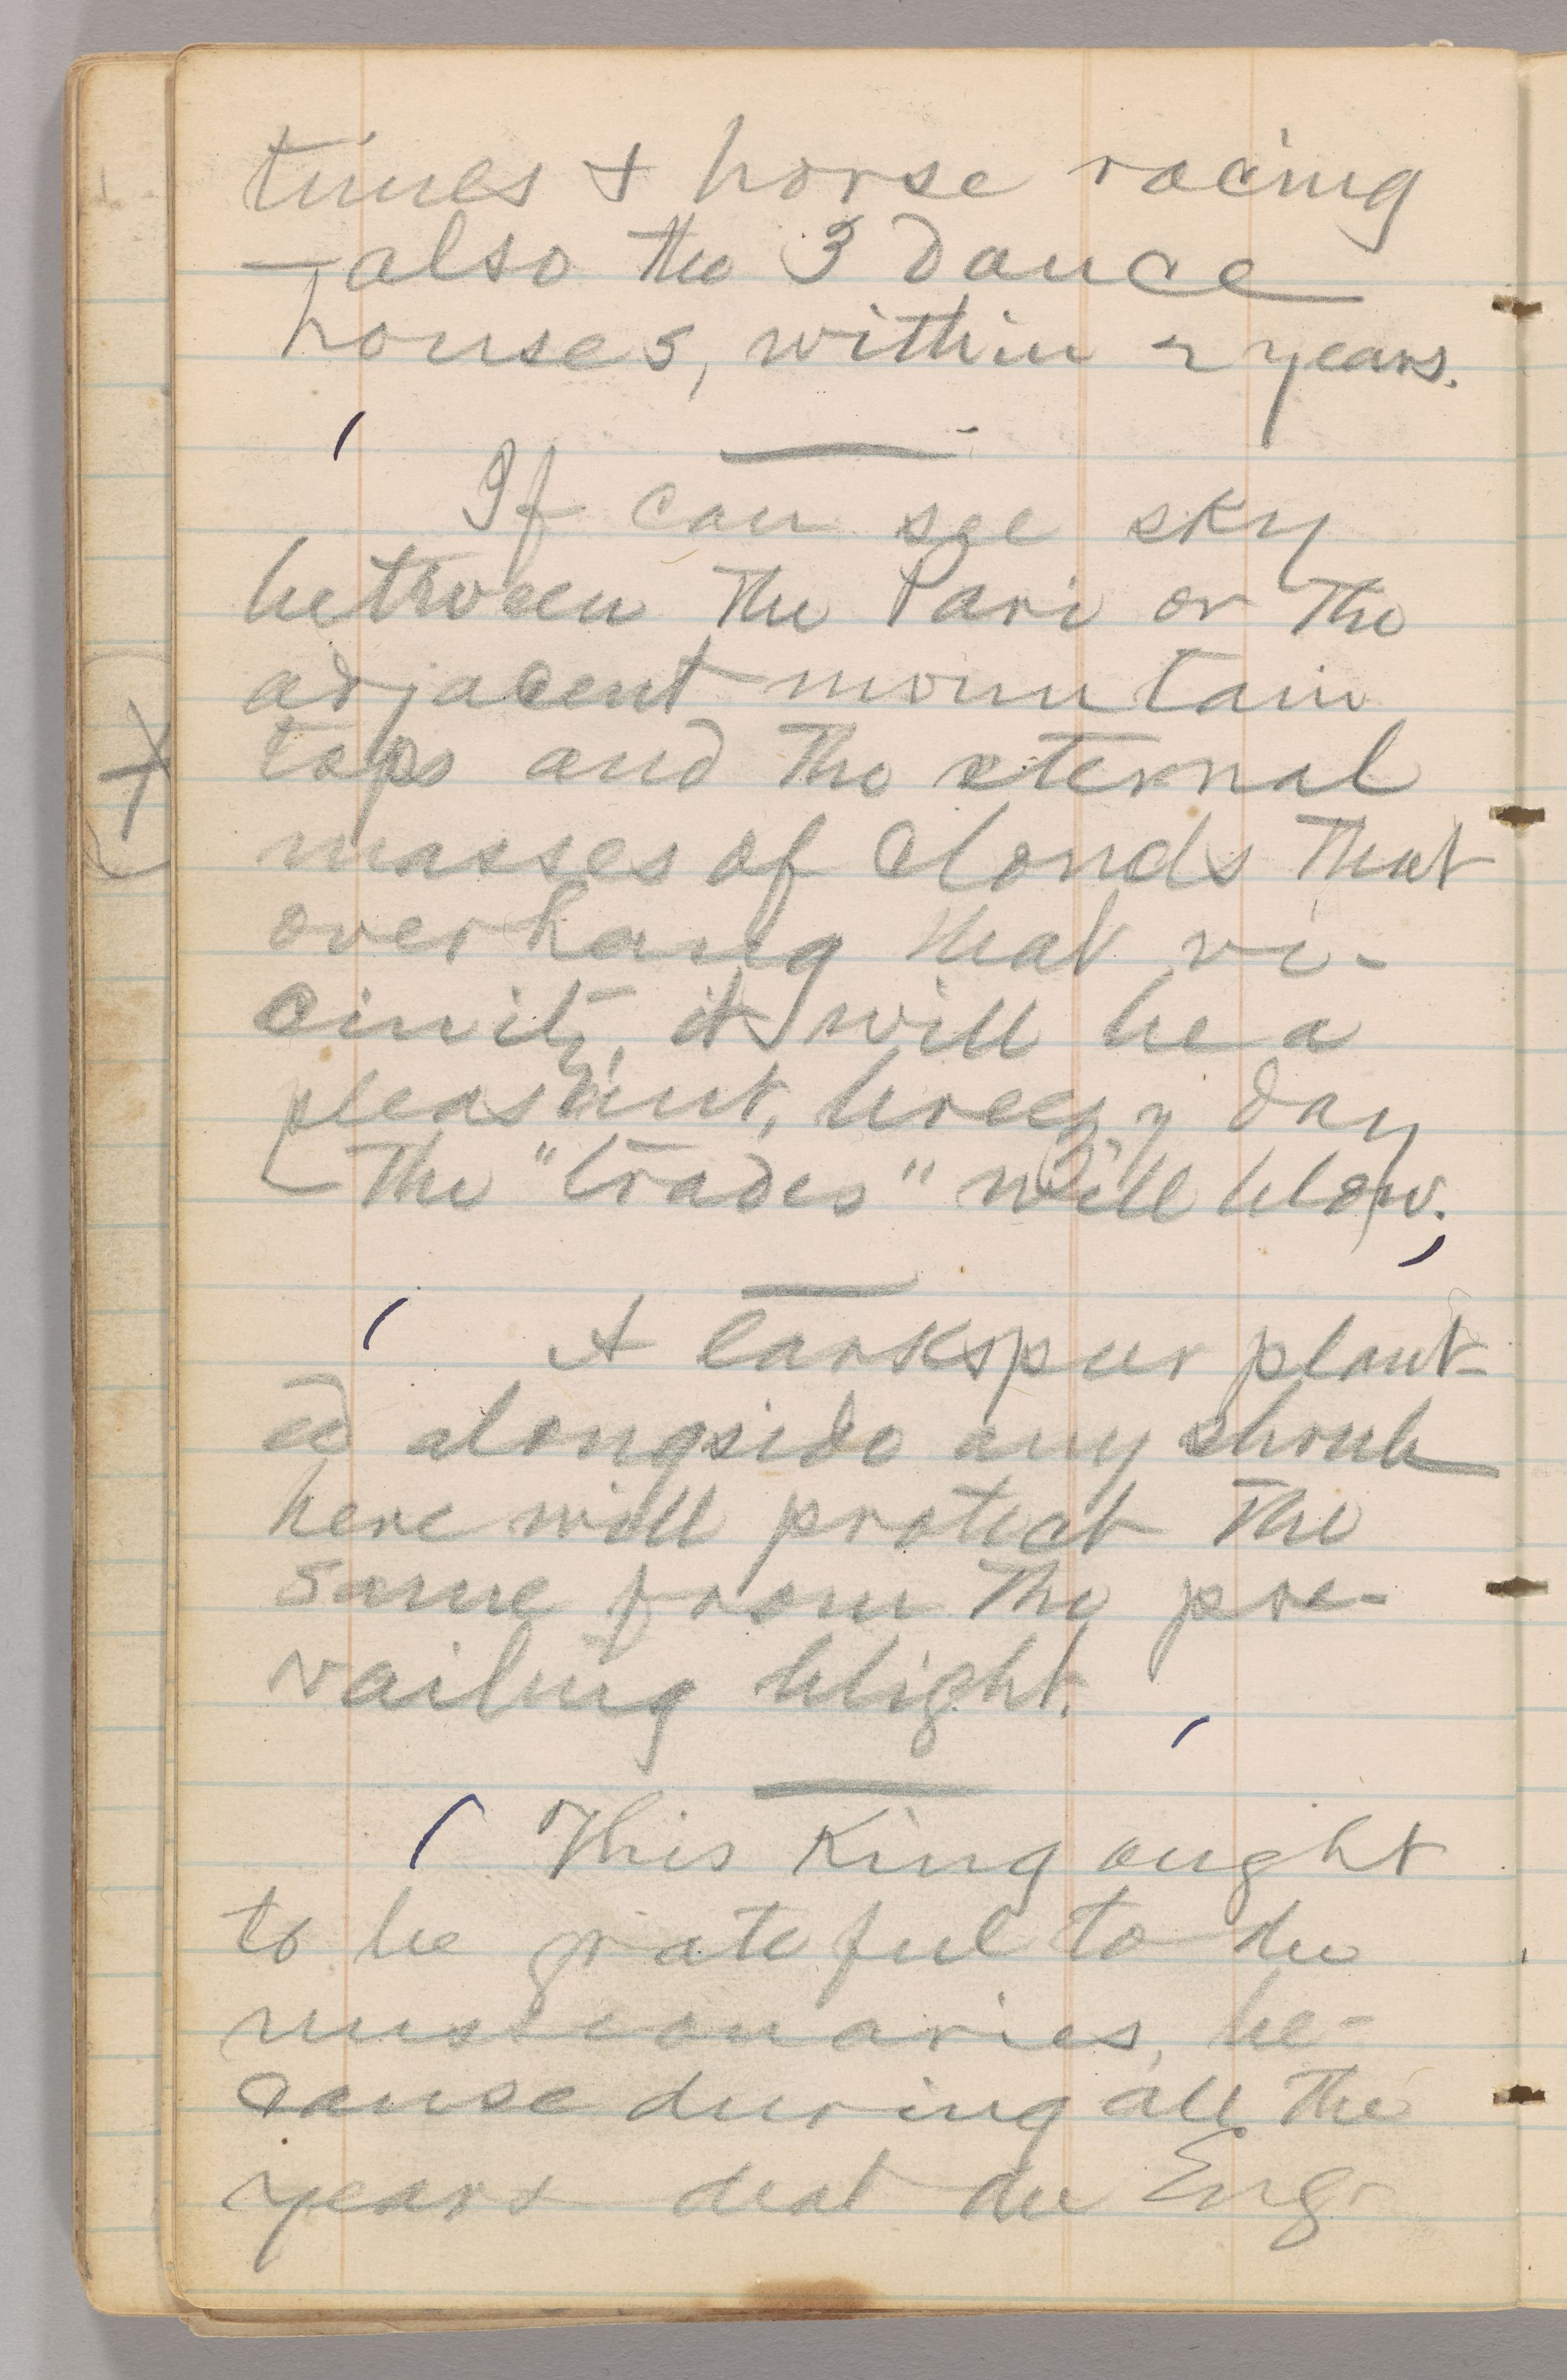 times & horse racing
— also the 3 dance
houses, within 2 years.
If can see sky
between the Pari or the
adjacent mountain
tops and the eternal
masses of clouds that
overhang that vi-
cinity, it will be a
pleasant, breezy day
— the "trades" will blow.
A larkspur plant-
ed alongside any shrub
here will protect the
same from the pre-
vailing blight.
This King ought
to be grateful to the
missionaries, be-
cause during all the
years that the Eng-